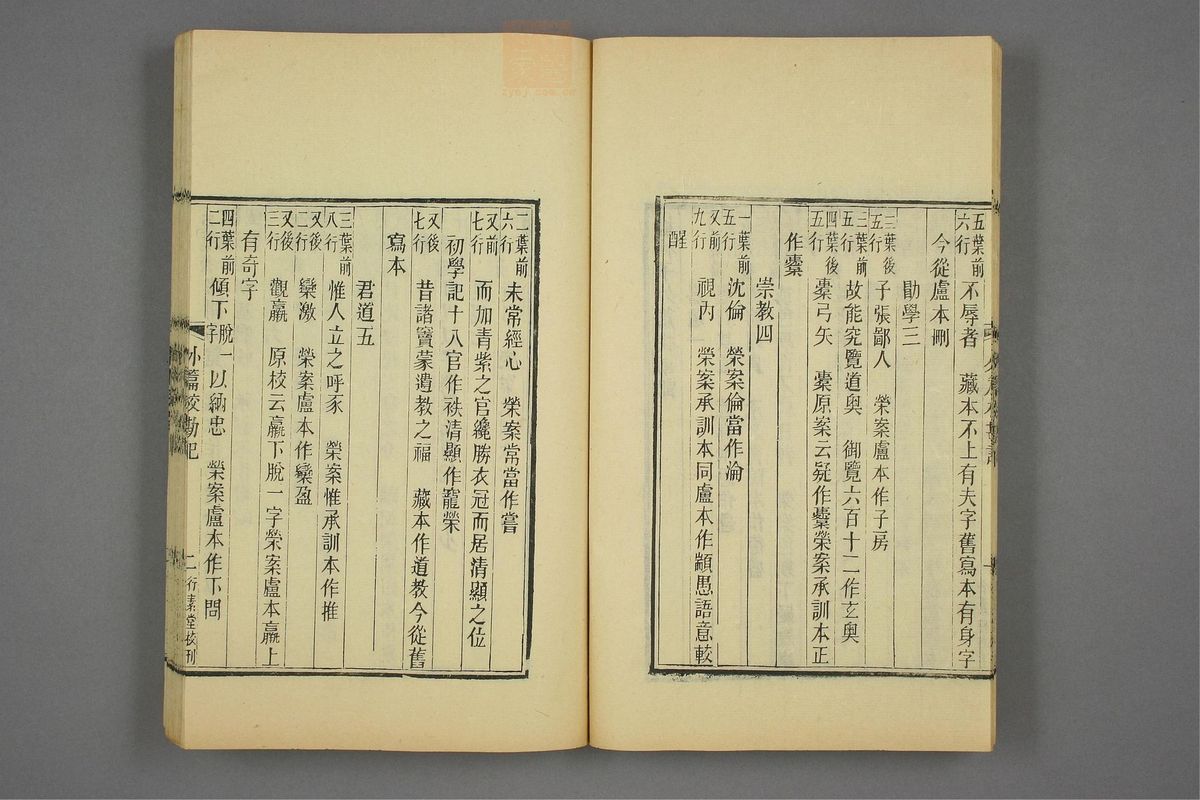 五葉前六行 不辱者 藏本不上有夫字舊寫本有身字
今從盧本刪
勖學三
三葉後五行 子張鄙人 榮案盧本作子房
三葉前五行 故能究覽道奥 御覽六百十二作玄奥
四葉後五行 櫜弓矢 櫜原案云疑作櫜榮案承訓本正
作櫜
崇教四
一葉前五行 沈倫 榮案倫當作淪
又前九行 視內 榮案承訓本同盧本作顓愚語意較
醒
二葉前六行 未常經心 榮案常當作嘗
又前七行 而加青紫之官纔勝衣冠而居清顯之位
初學記十八官作袟清顯作寵榮
又後七行 昔諸竇蒙遺教之福 藏本作道教今從舊
寫本
君道五
三葉前八行 惟人立之呼豕 榮案惟承訓本作推
又後二行 欒激 榮案盧本作欒盈
又後三行 觀羸 原校云羸下脫一字榮案盧本羸上
有奇字
四葉前二行 傾下脫一字以納忠 榮案盧本作下問
外篇校勘記 二 行素堂校刊